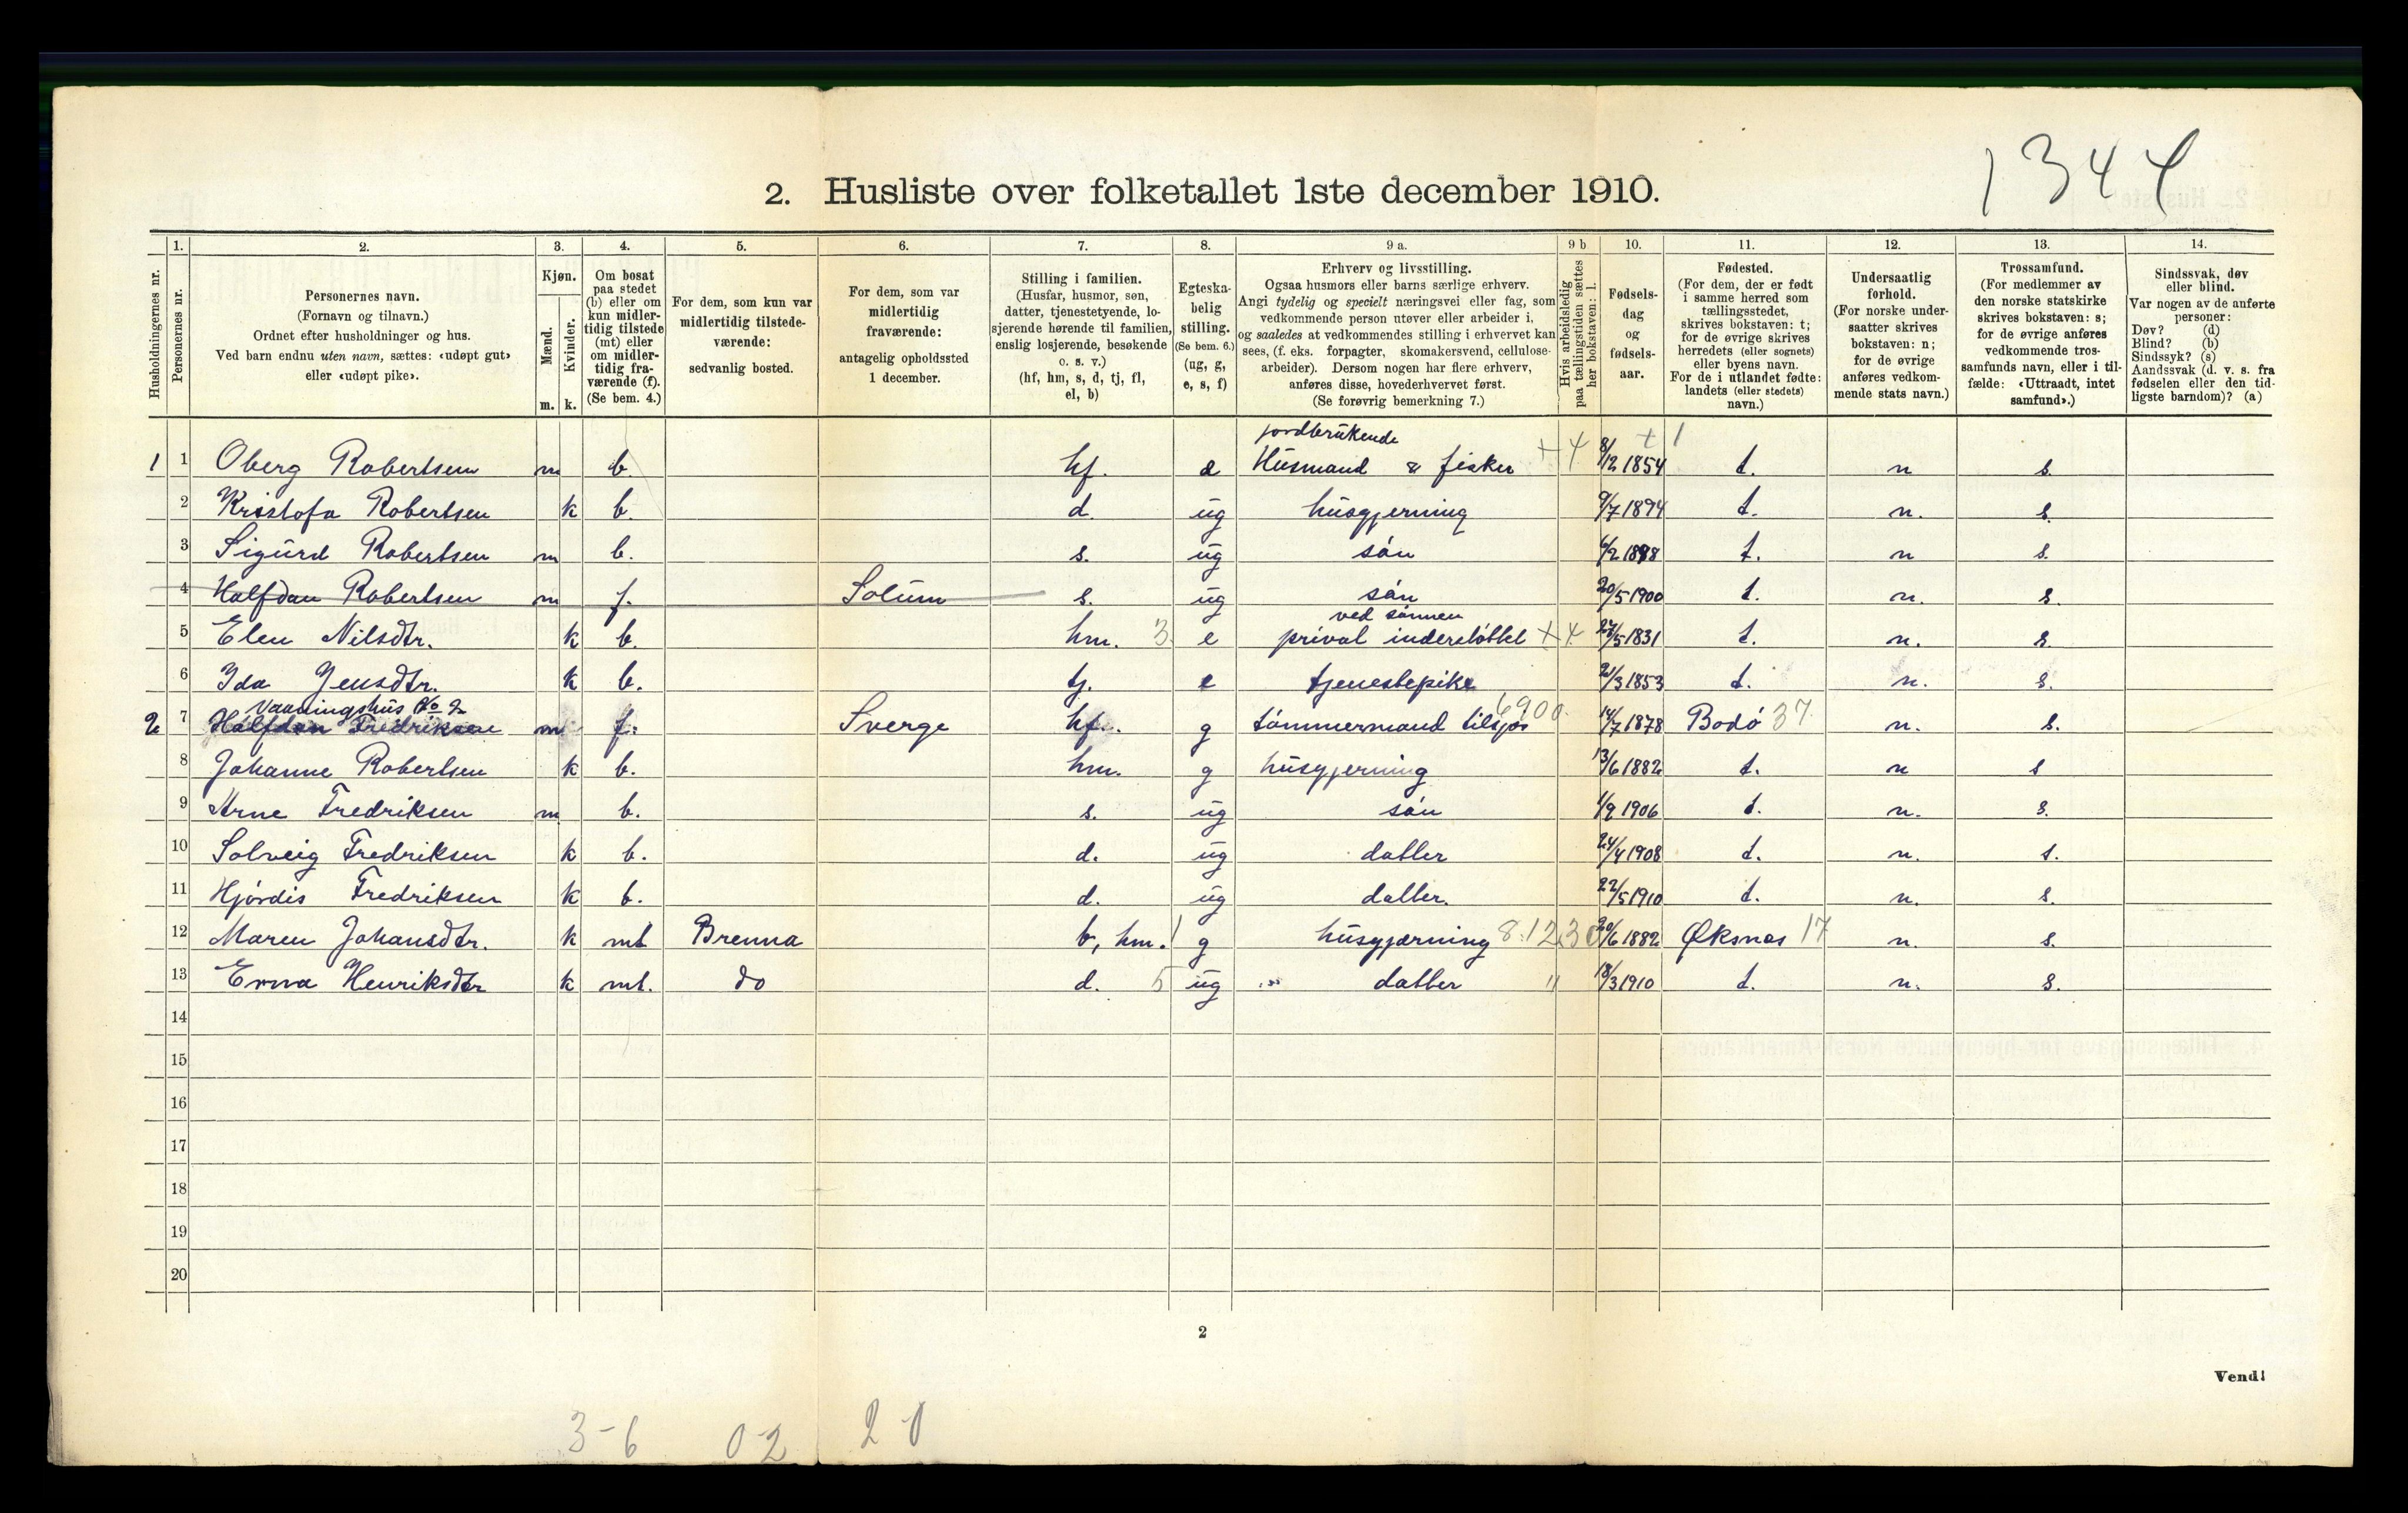 1344
2. Husliste over folketallet 1ste december 1910.
Husholdningernes nr.
1. Personernes nr.
2. Personernes navn.
(Fornavn og tilnavn.)
Ordnet efter husholdninger og hus.
Ved barn endnu uten navn, sættes: «udøpt gut»
eller «udøpt pike».
3. Kjøn.
Mænd. Kvinder.
m. k.
4. Om bosat
paa stedet
(b) eller om
kun midler-
tidig tilstede
(mt) eller
om midler-
tidig fra-
værende (f).
(Se bem. 4.)
5. For dem, som kun var
midlertidig tilstede-
værende:
sedvanlig bosted.
6. For dem, som var
midlertidig
fraværende:
antagelig opholdssted
1 december.
7. Stilling i familien.
(Husfar, husmor, søn,
datter, tjenestetyende, lo-
sjerende hørende til familien,
enslig losjerende, besøkende
o. s. v.)
(hf, hm, s, d, tj, fl,
el, b)
8. Egteska-
belig
stilling.
(Se bem. 6.)
(ug, g,
e, s, f)
9 a. Erhverv og livsstilling.
Ogsaa husmors eller barns særlige erhverv.
Angi tydelig og specielt næringsvei eller fag, som
vedkommende person utøver eller arbeider i,
og saaledes at vedkommendes stilling i erhvervet kan
sees, (f. eks. forpagter, skomakersvend, cellulose-
arbeider). Dersom nogen har flere erhverv,
anføres disse, hovederhvervet først.
(Se forøvrig bemerkning 7.)
9 b Hvis arbeidsledig
paa tællingstiden sættes
her bokstaven: l.
10. Fødsels-
dag
og
fødsels-
aar.
11. Fødested.
(For dem, der er født
i samme herred som
tællingsstedet,
skrives bokstaven: t;
for de øvrige skrives
herredets (eller sognets)
eller byens navn.
For de i utlandet fødte:
landets (eller stedets)
navn.)
12. Undersaatlig
forhold.
(For norske under-
saatter skrives
bokstaven: n;
for de øvrige
anføres vedkom-
mende stats navn.)
13. Trossamfund.
(For medlemmer av
den norske statskirke
skrives bokstaven: s;
for de øvrige anføres
vedkommende tros-
samfunds navn, eller i til-
fælde: «Uttraadt, intet
samfund».)
14. Sindssvak, døv
eller blind.
Var nogen av de anførte
personer:
Døv? (d)
Blind? (b)
Sindssyk? (s)
Aandssvak (d. v. s. fra
fødselen eller den tid-
ligste barndom)? (a)
jordbrukende
1 1 Oberg Robertsen m b. hf. e Husmand & fisker + 4 8/12 1854 t. n s.
2 Kristofa Robertsen k b. d. ug husgjerning 9/7 1894 t. n. s.
3 Sigurd Robertsen m b. s. ug søn 6/2 1898 t. n s.
4 Halfdan Robertsen m f. Solum s. ug søn 20/5 1900 t. n. s.
ved sønnen
5 Elen Nilsdtr. k b. hm. 3 e privat understøttet + 4 27/5 1831 t. n. s.
6 Ida Jensdtr. k b. tj. e tjenestepike 21/3 1853 t. n. s.
Vaaningshus No 2
2 7 Halfdan Fredriksen m f. Sverge hf. g tømmermand tilsjøs 6900 14/7 1878 Bodø 37 n. s.
8 Johanne Robertsen k b. hm. g husgjerning 13/6 1882 t. n s
9 Arne Fredriksen m b. s. ug søn 1/9 1906 t. n. s.
10 Solveig Fredriksen k b. d. ug datter 24/4 1908 t. n. s.
11 Hjørdis Fredriksen k b. d. ug datter. 22/5 1910 t. n. s.
12 Maren Johansdtr. k mt Brenna b, hm. 1 g husgjerning 8.12.30 20/6 1882 Øksnes 17 n. s.
13 Erna Henriksdtr k mt. do d. 5 ug datter " 18/3 1910 t. n. s.
14
15
16
17
18
19
20
2
Vend!
3-6 0-2 2-0